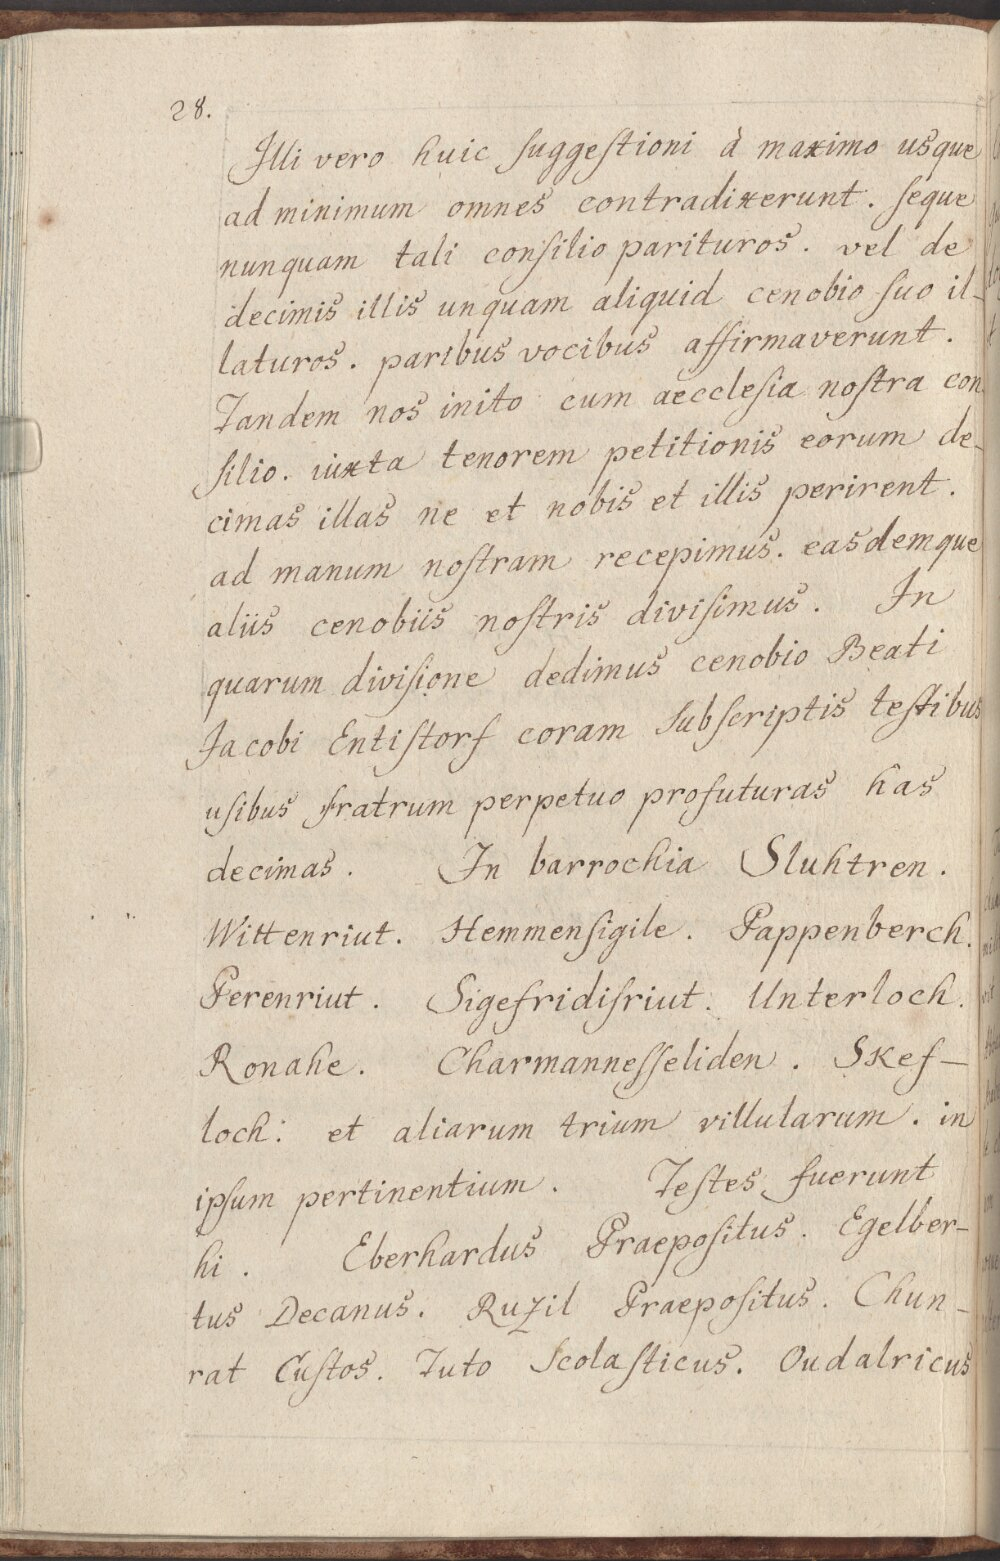 28.
Illi vero huic suggestioni à maximo usque
ad minimum omnes contradixerunt. seque
nunquam tali consilio parituros. vel de
decimis illis unquam aliquid cenobio suo il-
laturos. paribus vocibus affirmaverunt.
Tandem nos inito cum aecclesia nostra con
silio. iuxta tenorem petitionis eorum de-
cimas illas ne et nobis et illis perirent.
ad manum nostram recepimus. easdemque
aliis cenobiis nostris divisimus. In
quarum divisione dedimus cenobio Beati
Jacobi Entistorf coram subscriptis testibus
usibus fratrum perpetuo profuturas has
decimas. In barrochia Sluhtren.
Wittenriut. Hemmensigile. Pappenberch.
Perenriut. Sigefridisriut. Unterloch.
Ronahe. Charmannesseliden. Skef-
loch: et aliarum trium villularum. in
ipsum pertinentium. Testes fuerunt
hi. Eberhardus Praepositus. Egelber-
tus Decanus. Ruzil Praepositus. Chun-
rat Custos. Tuto Scolasticus. Oudalricus